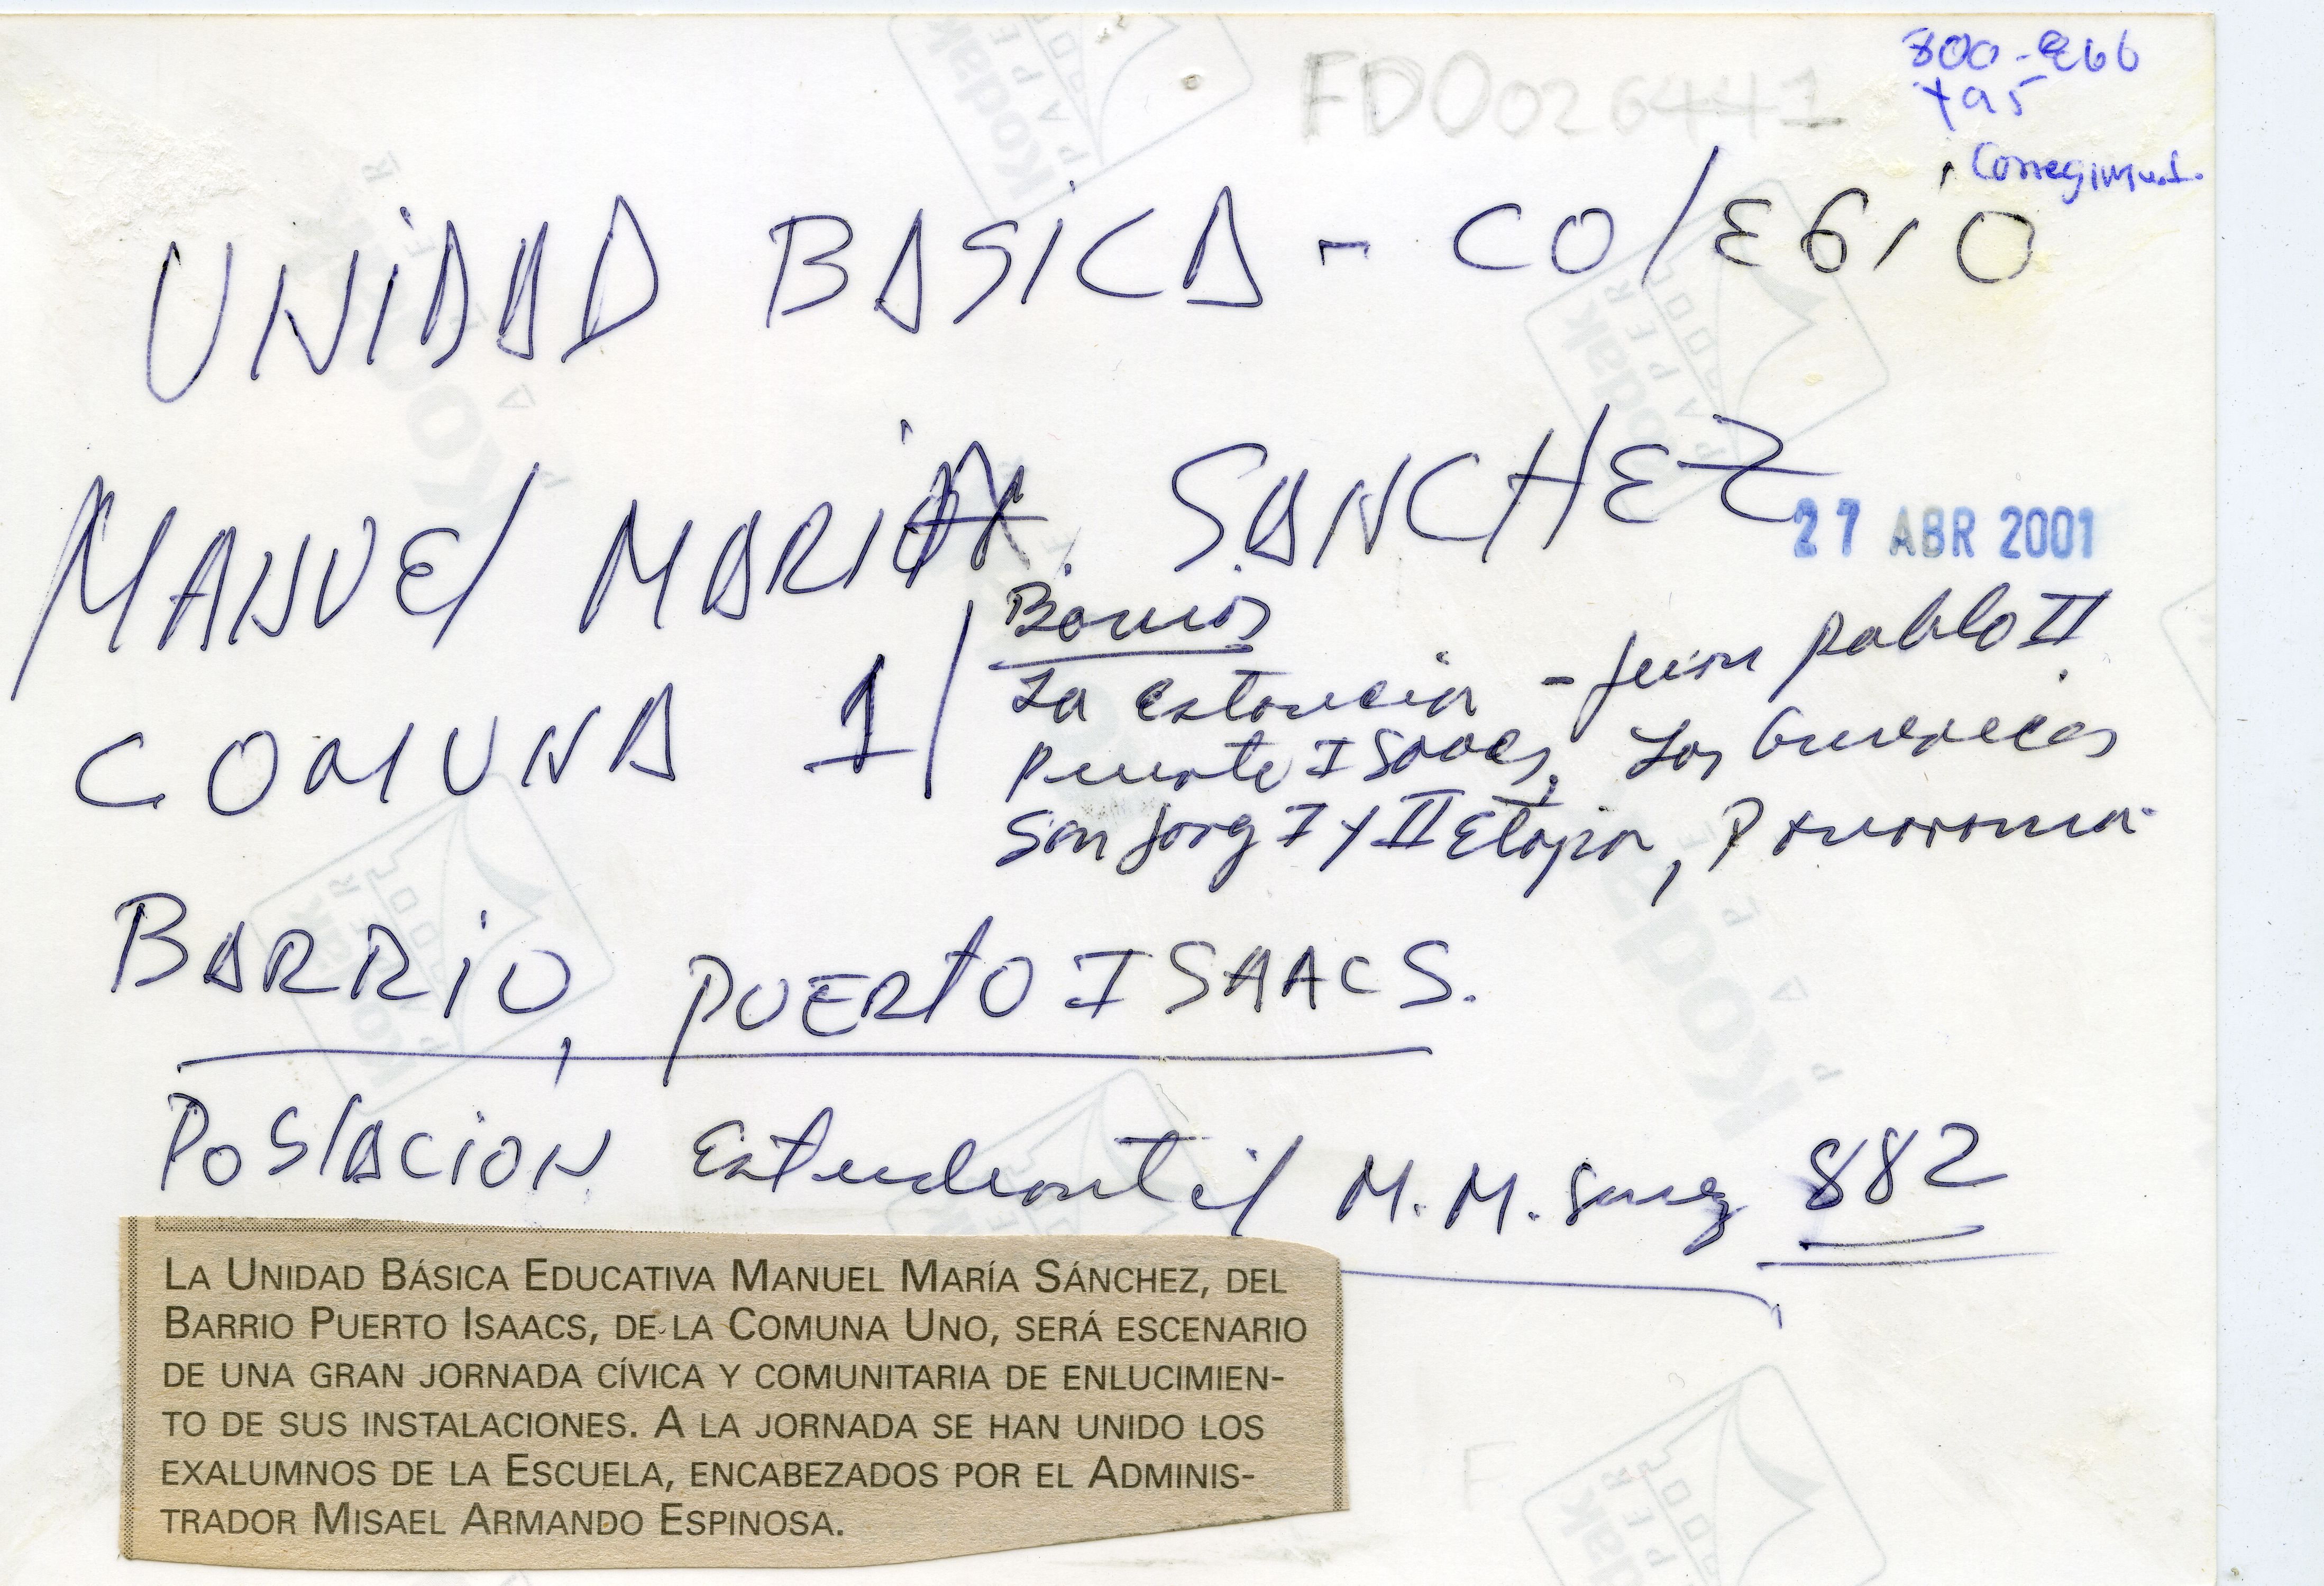 FD0026441
800-266
+a5
UNiDAD BASiCA - COlEGiO
MANUEl MARiA SANCHEZ
27 ABR 2001
COMUNA 1/
Barrios
La estancia - Juan pablo II
puerto ISaacs, Las Guacas
San Jorge I y II Etapa, Panorama
BARRiO, PUERtO ISAACS.
PoBlACiON Estudiantil M. M. Sanz 882
LA UNIDAD BÁSICA EDUCATIVA MANUEL MARÍA SÁNCHEZ, DEL
BARRIO PUERTO ISAACS, DE LA COMUNA UNO, SERÁ ESCENARIO
DE UNA GRAN JORNADA CÍVICA Y COMUNITARIA DE ENLUCIMIEN-
TO DE SUS INSTALACIONES. A LA JORNADA SE HAN UNIDO LOS
EXALUMNOS DE LA ESCUELA, ENCABEZADOS POR EL ADMINIS-
TRADOR MISAEL ARMANDO ESPINOSA.